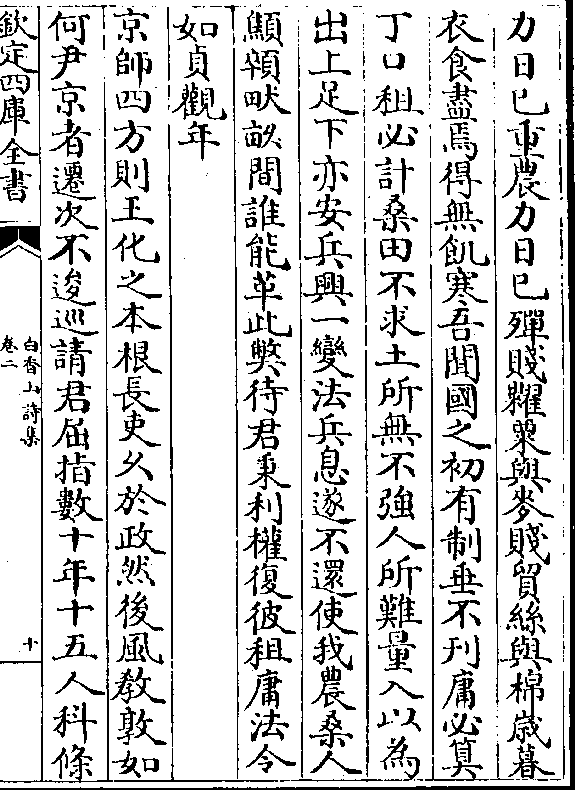 力日已重農力日已殫賤糶粟與麥賤貿絲與棉歳暮
衣食盡焉得無飢寒吾聞國之初有制垂不刋庸必算
丁口租必計桑田不求土所無不強人所難量入以為
出上足下亦安兵興一變法兵息遂不還使我農桑人
顦顇畎畝間誰能革此獘待君秉利權復彼租庸法令
如貞觀年
京師四方則王化之本根長吏久於政然後風敎敦如
何尹京者遷次不逡巡請君屈指數十年十五人科條
欽定四庫全書
白香山詩集
卷二
十